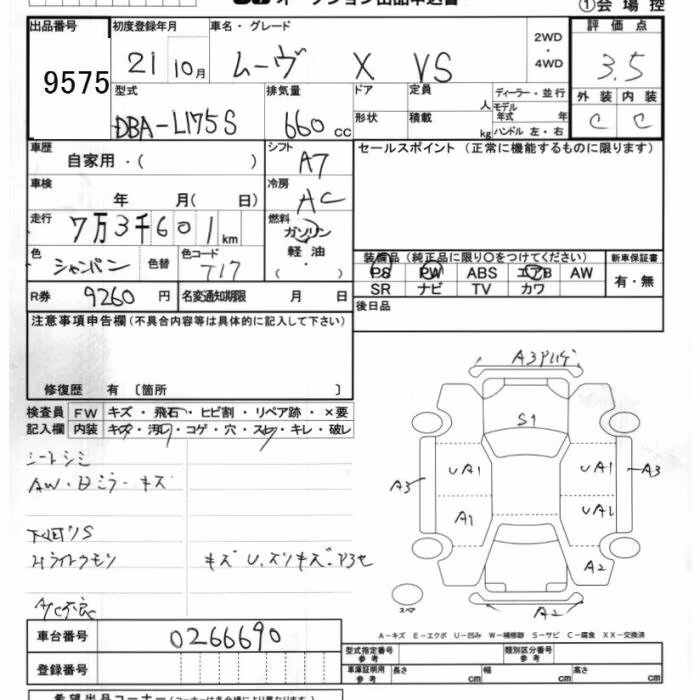 オークション出品申込書
①会場控
出品番号
9575
初度登録年月
21 10月
車名・グレード
ムーヴ X VS
2WD
・
4WD
評価点
3.5
型式
DBA-L175S
排気量
660 cc
ドア
形状
定員
人
積載
kg
ディーラー・並行
モデル年式 年
ハンドル 左・右
外装
内装
C
C
車歴
自家用・( )
シフト
A7
セールスポイント (正常に機能するものに限ります)
車検
年 月( 日)
冷房
AC
走行
7万3千601km
燃料
ガソリン
軽油
( ・ )
色
シャンパン
色替
色コード
T17
装備品(純正品に限り○をつけてください)
PS PW ABS エアB AW
SR ナビ TV カワ
新車保証書
有・無
R券
9260円
名変通知期限 月 日
後日品
注意事項申告欄(不具合内容等は具体的に記入して下さい)
修復歴 有 〔箇所 〕
検査員
記入欄
FW キズ・飛石・ヒビ割・リペア跡・×要
内装 キズ・汚れ・コゲ・穴・スレ・キレ・破レ
シートシミ
AW・Bミラーキズ
下回リS
Hライトクモリ
キズU.スリキズ
A/C不良
A3
S1
UA1
UA1
A3
A3
A1
UA1
A2
スペア
A2
A－キズ E－エクボ U－凹み W－補修跡 S－サビ C－腐食 XX－交換済
車台番号
0266690
登録番号
型式指定番号
参考
類別区分番号
参考
車庫証明用
参考
長さ cm
幅 cm
高さ cm
希望出品コーナー